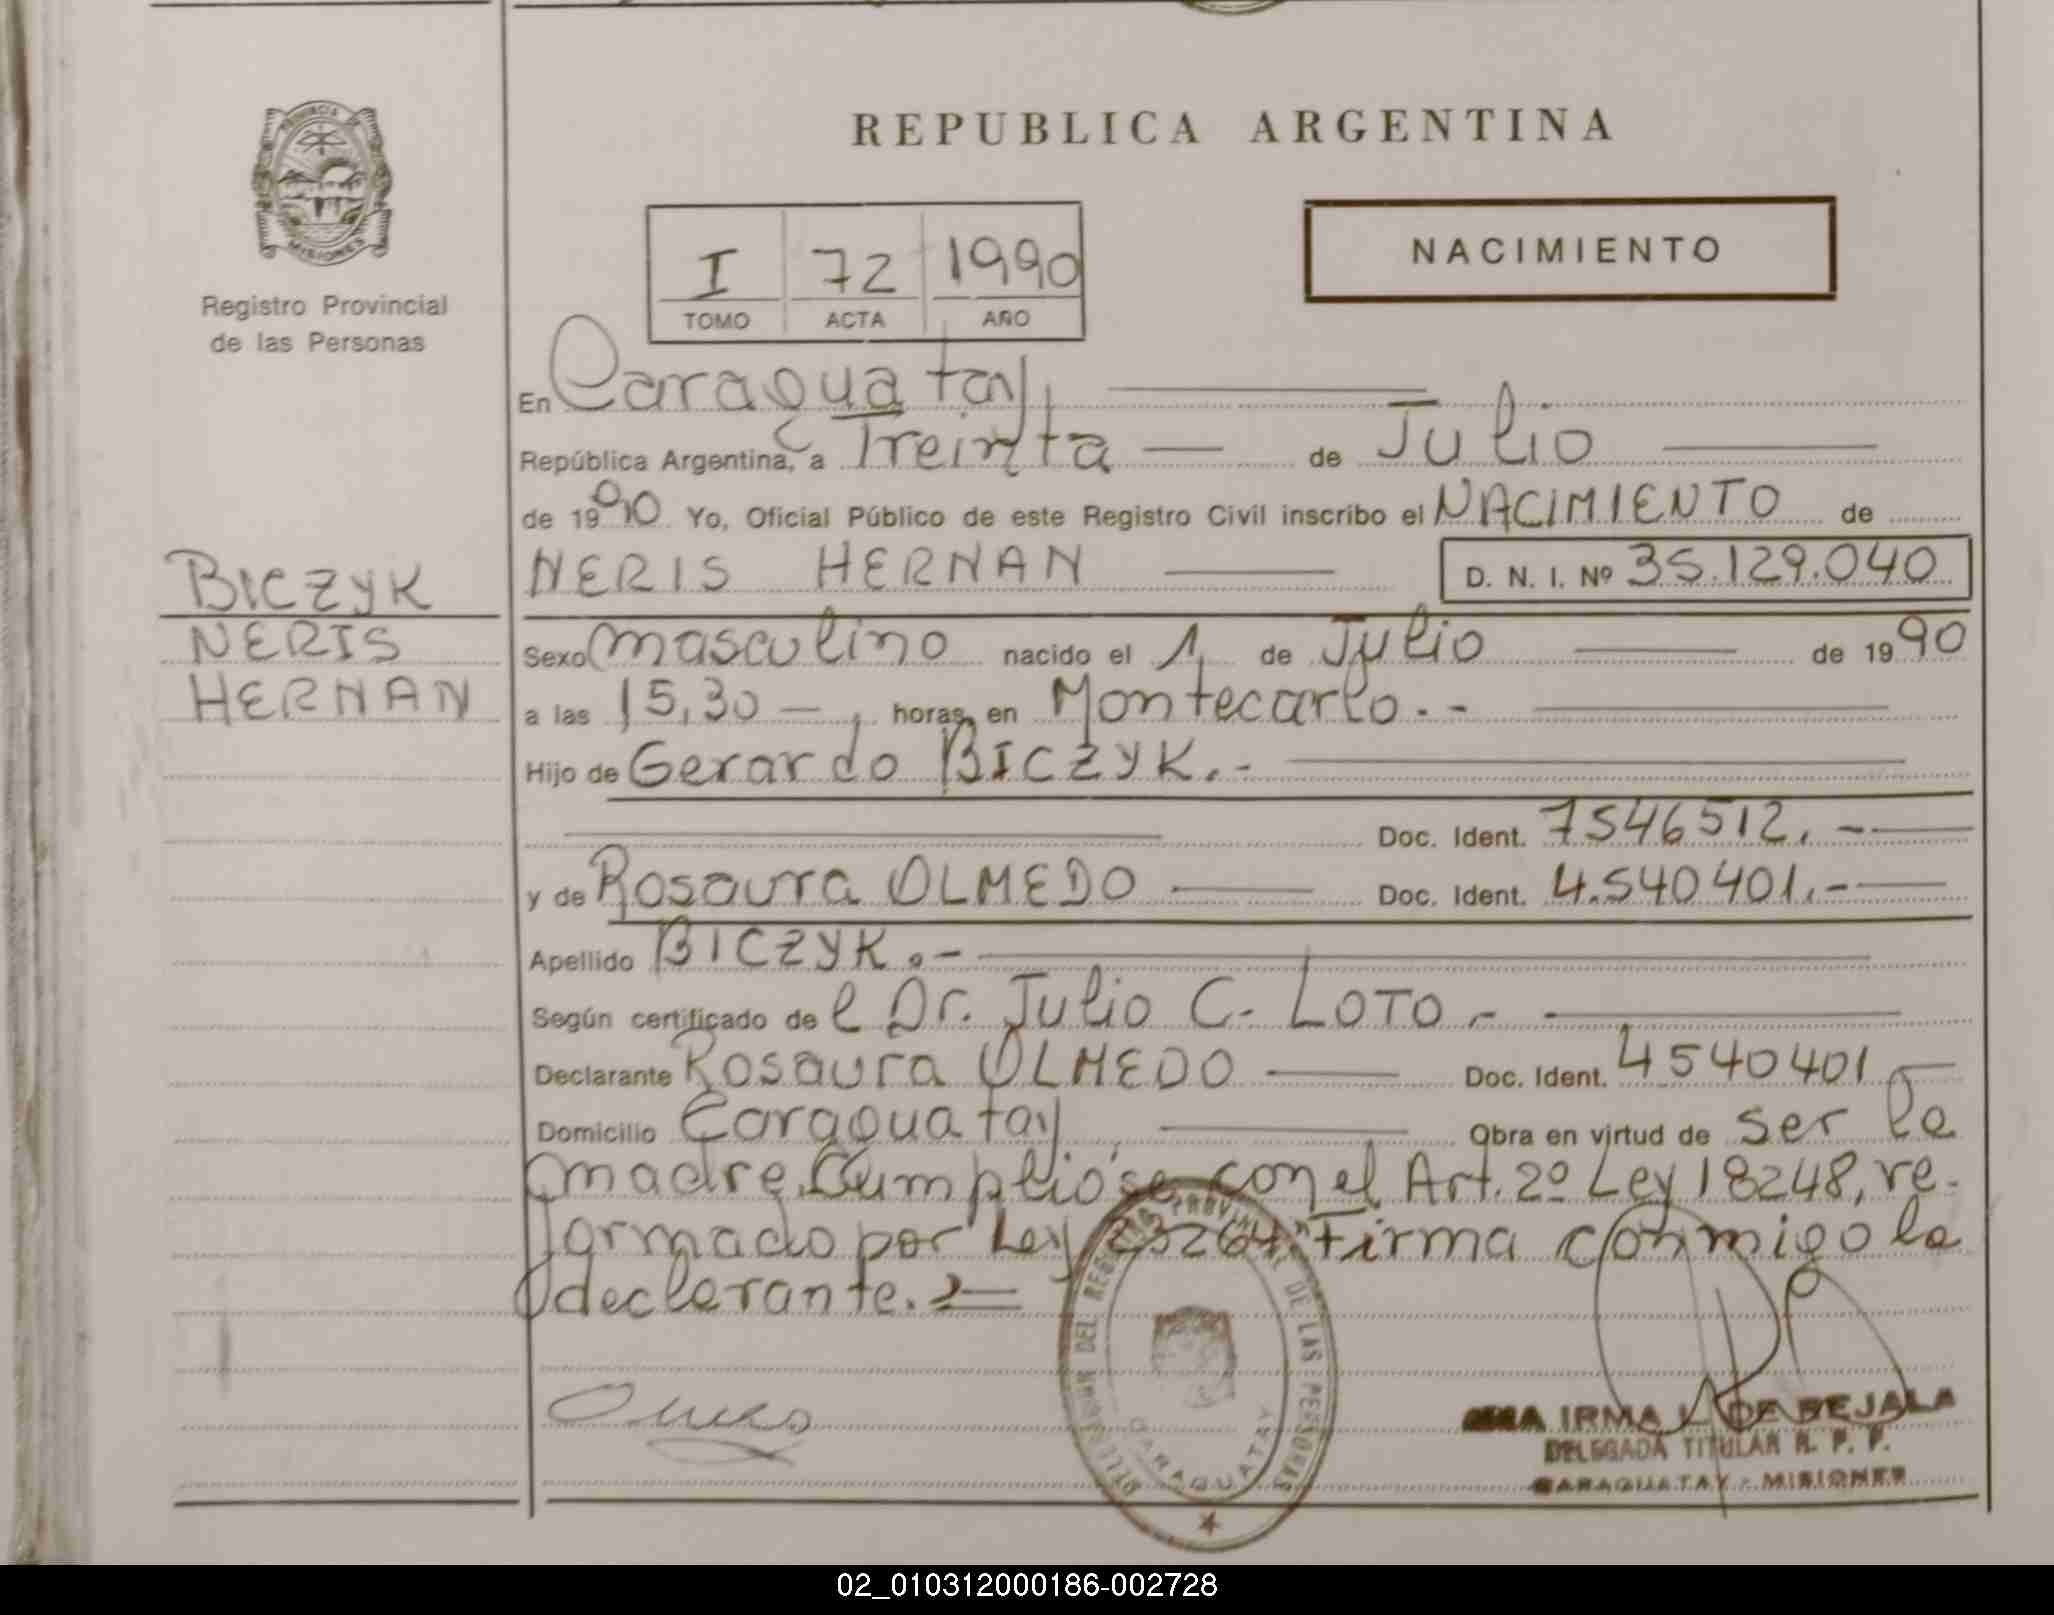 REPUBLICA ARGENTINA
PROVINCIA DE MISIONES
Registro Provincial
de las Personas
I 72 1990
TOMO ACTA AÑO
NACIMIENTO
En Caraguatay,
República Argentina, a Treinta — de Julio
de 1990 Yo, Oficial Público de este Registro Civil inscribo el NACIMIENTO de
BICZYK
NERIS
HERNAN
NERIS HERNAN D. N. I. Nº 35.129.040
Sexo masculino nacido el 1 de Julio de 1990
a las 15,30 —, horas, en Montecarlo.-
Hijo de Gerardo BICZYK.-
Doc. Ident. 7546512.-
y de Rosaura OLMEDO — Doc. Ident. 4.540401.-
Apellido BICZYK.-
Según certificado de l Dr. Julio C. LOTO.-
Declarante Rosaura OLMEDO — Doc. Ident. 4540401
Domicilio Caraguatay, Obra en virtud de ser la
madre. Cumplióse con el Art. 2º Ley 18248, re-
formado por Ley 23264 Firma conmigo la
declarante.
REGISTRO PROVINCIAL DE LAS PERSONAS
CARAGUATAY
IRMA L. DE BEJALA
DELEGADA TITULAR R. P. P.
CARAGUATAY - MISIONES
02_010312000186-002728